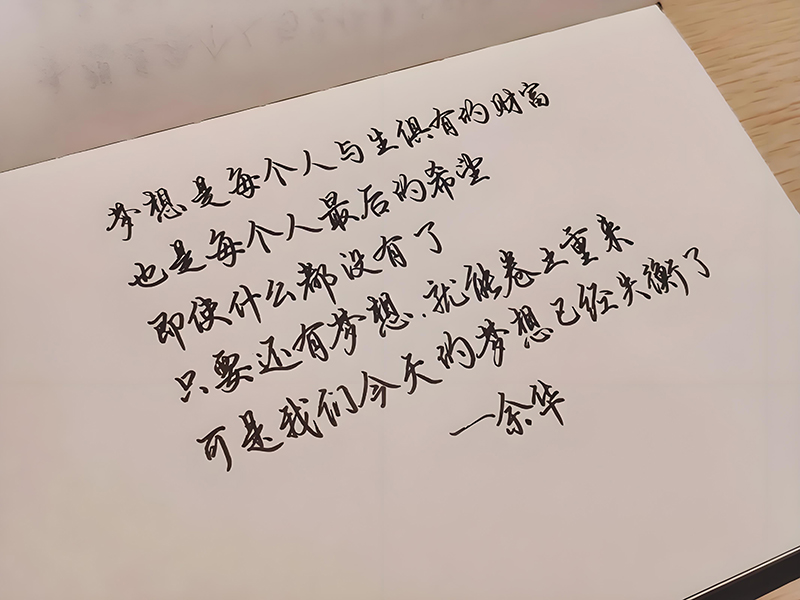 梦想是每个人与生俱有的财富
也是每个人最后的希望
即使什么都没有了
只要还有梦想.就能卷土重来
可是我们今天的梦想已经失衡了
—余华